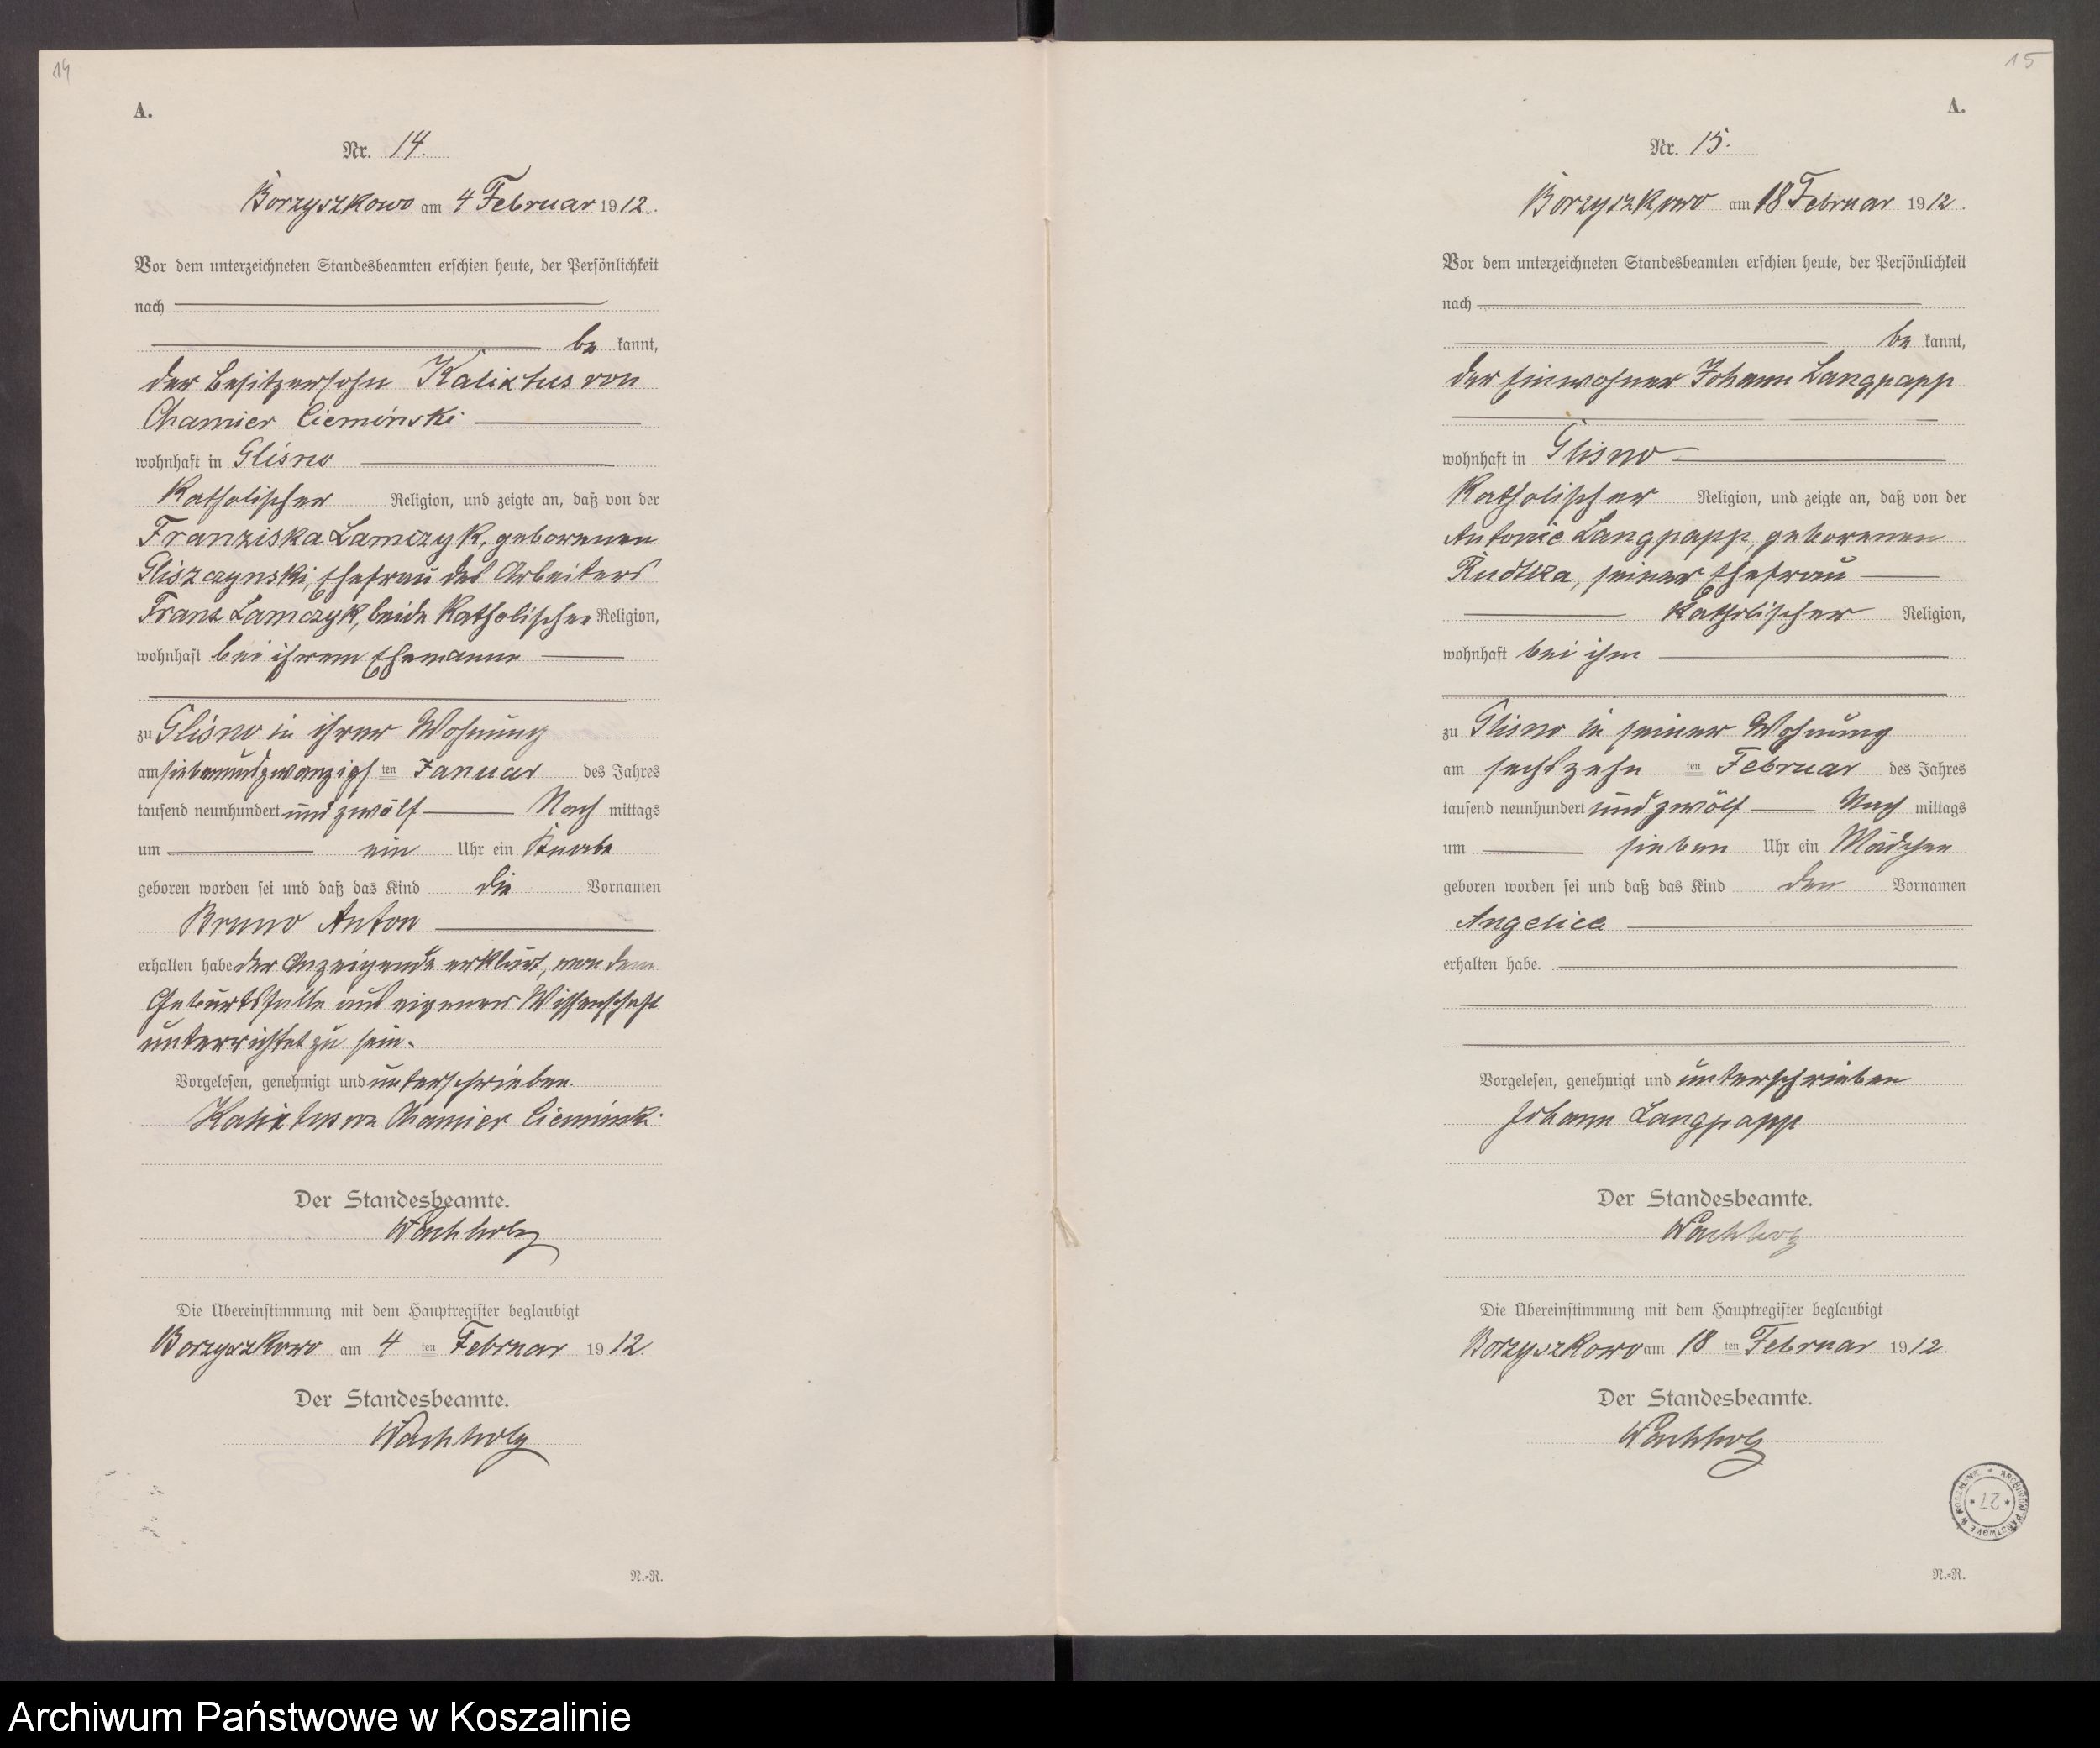 14
A.
Nr. 14.
Borzyszkowo am 4 Februar 1912.
Vor dem unterzeichneten Standesbeamten erschien heute, der Persönlichkeit
nach
be kannt,
der Besitzersohn Kalixtus von
Chamier Cieminski
wohnhaft in Glisno
Katholischer Religion, und zeigte an, daß von der
Franziska Lamczyk, geborenen
Gliszczynski, Ehefrau des Arbeiters
Franz Lamczyk, beide Katholischer Religion,
wohnhaft bei ihrem Ehemanne
zu Glisno in ihrer Wohnung
am siebenundzwanzigs ten Januar des Jahres
tausend neunhundert und zwölf Nach mittags
um ein Uhr ein Knabe
geboren worden sei und daß das Kind die Vornamen
Bruno Anton
erhalten habe der Anzeigende erklärt, von dem
Geburtsfalle aus eigener Wissenschaft
unterrichtet zu sein.
Vorgelesen, genehmigt und unterschrieben.
Kalixtus von Chamier Cieminski
Der Standesbeamte.
Wachholz
Die Übereinstimmung mit dem Hauptregister beglaubigt
Borzyszkowo am 4 ten Februar 1912.
Der Standesbeamte.
Wachholz
N.-R.
15
A.
Nr. 15.
Borzyszkowo am 18 Februar 1912.
Vor dem unterzeichneten Standesbeamten erschien heute, der Persönlichkeit
nach
be kannt,
der Einwohner Johann Langpapp
wohnhaft in Glisno
Katholischer Religion, und zeigte an, daß von der
Antonie Langpapp, geborenen
seiner Ehefrau
Katholischer Religion,
wohnhaft bei ihm
zu Glisno in seiner Wohnung
am sechszehn ten Februar des Jahres
tausend neunhundert und zwölf Nach mittags
um sieben Uhr ein Mädchen
geboren worden sei und daß das Kind den Vornamen
Angelica
erhalten habe.
Vorgelesen, genehmigt und unterschrieben
Johann Langpapp
Der Standesbeamte.
Wachholz
Die Übereinstimmung mit dem Hauptregister beglaubigt
Borzyszkowo am 18 ten Februar 1912.
Der Standesbeamte.
Wachholz
ARCHIWUM PAŃSTWOWE W KOSZALINIE
27
N.-R.
Archiwum Państwowe w Koszalinie